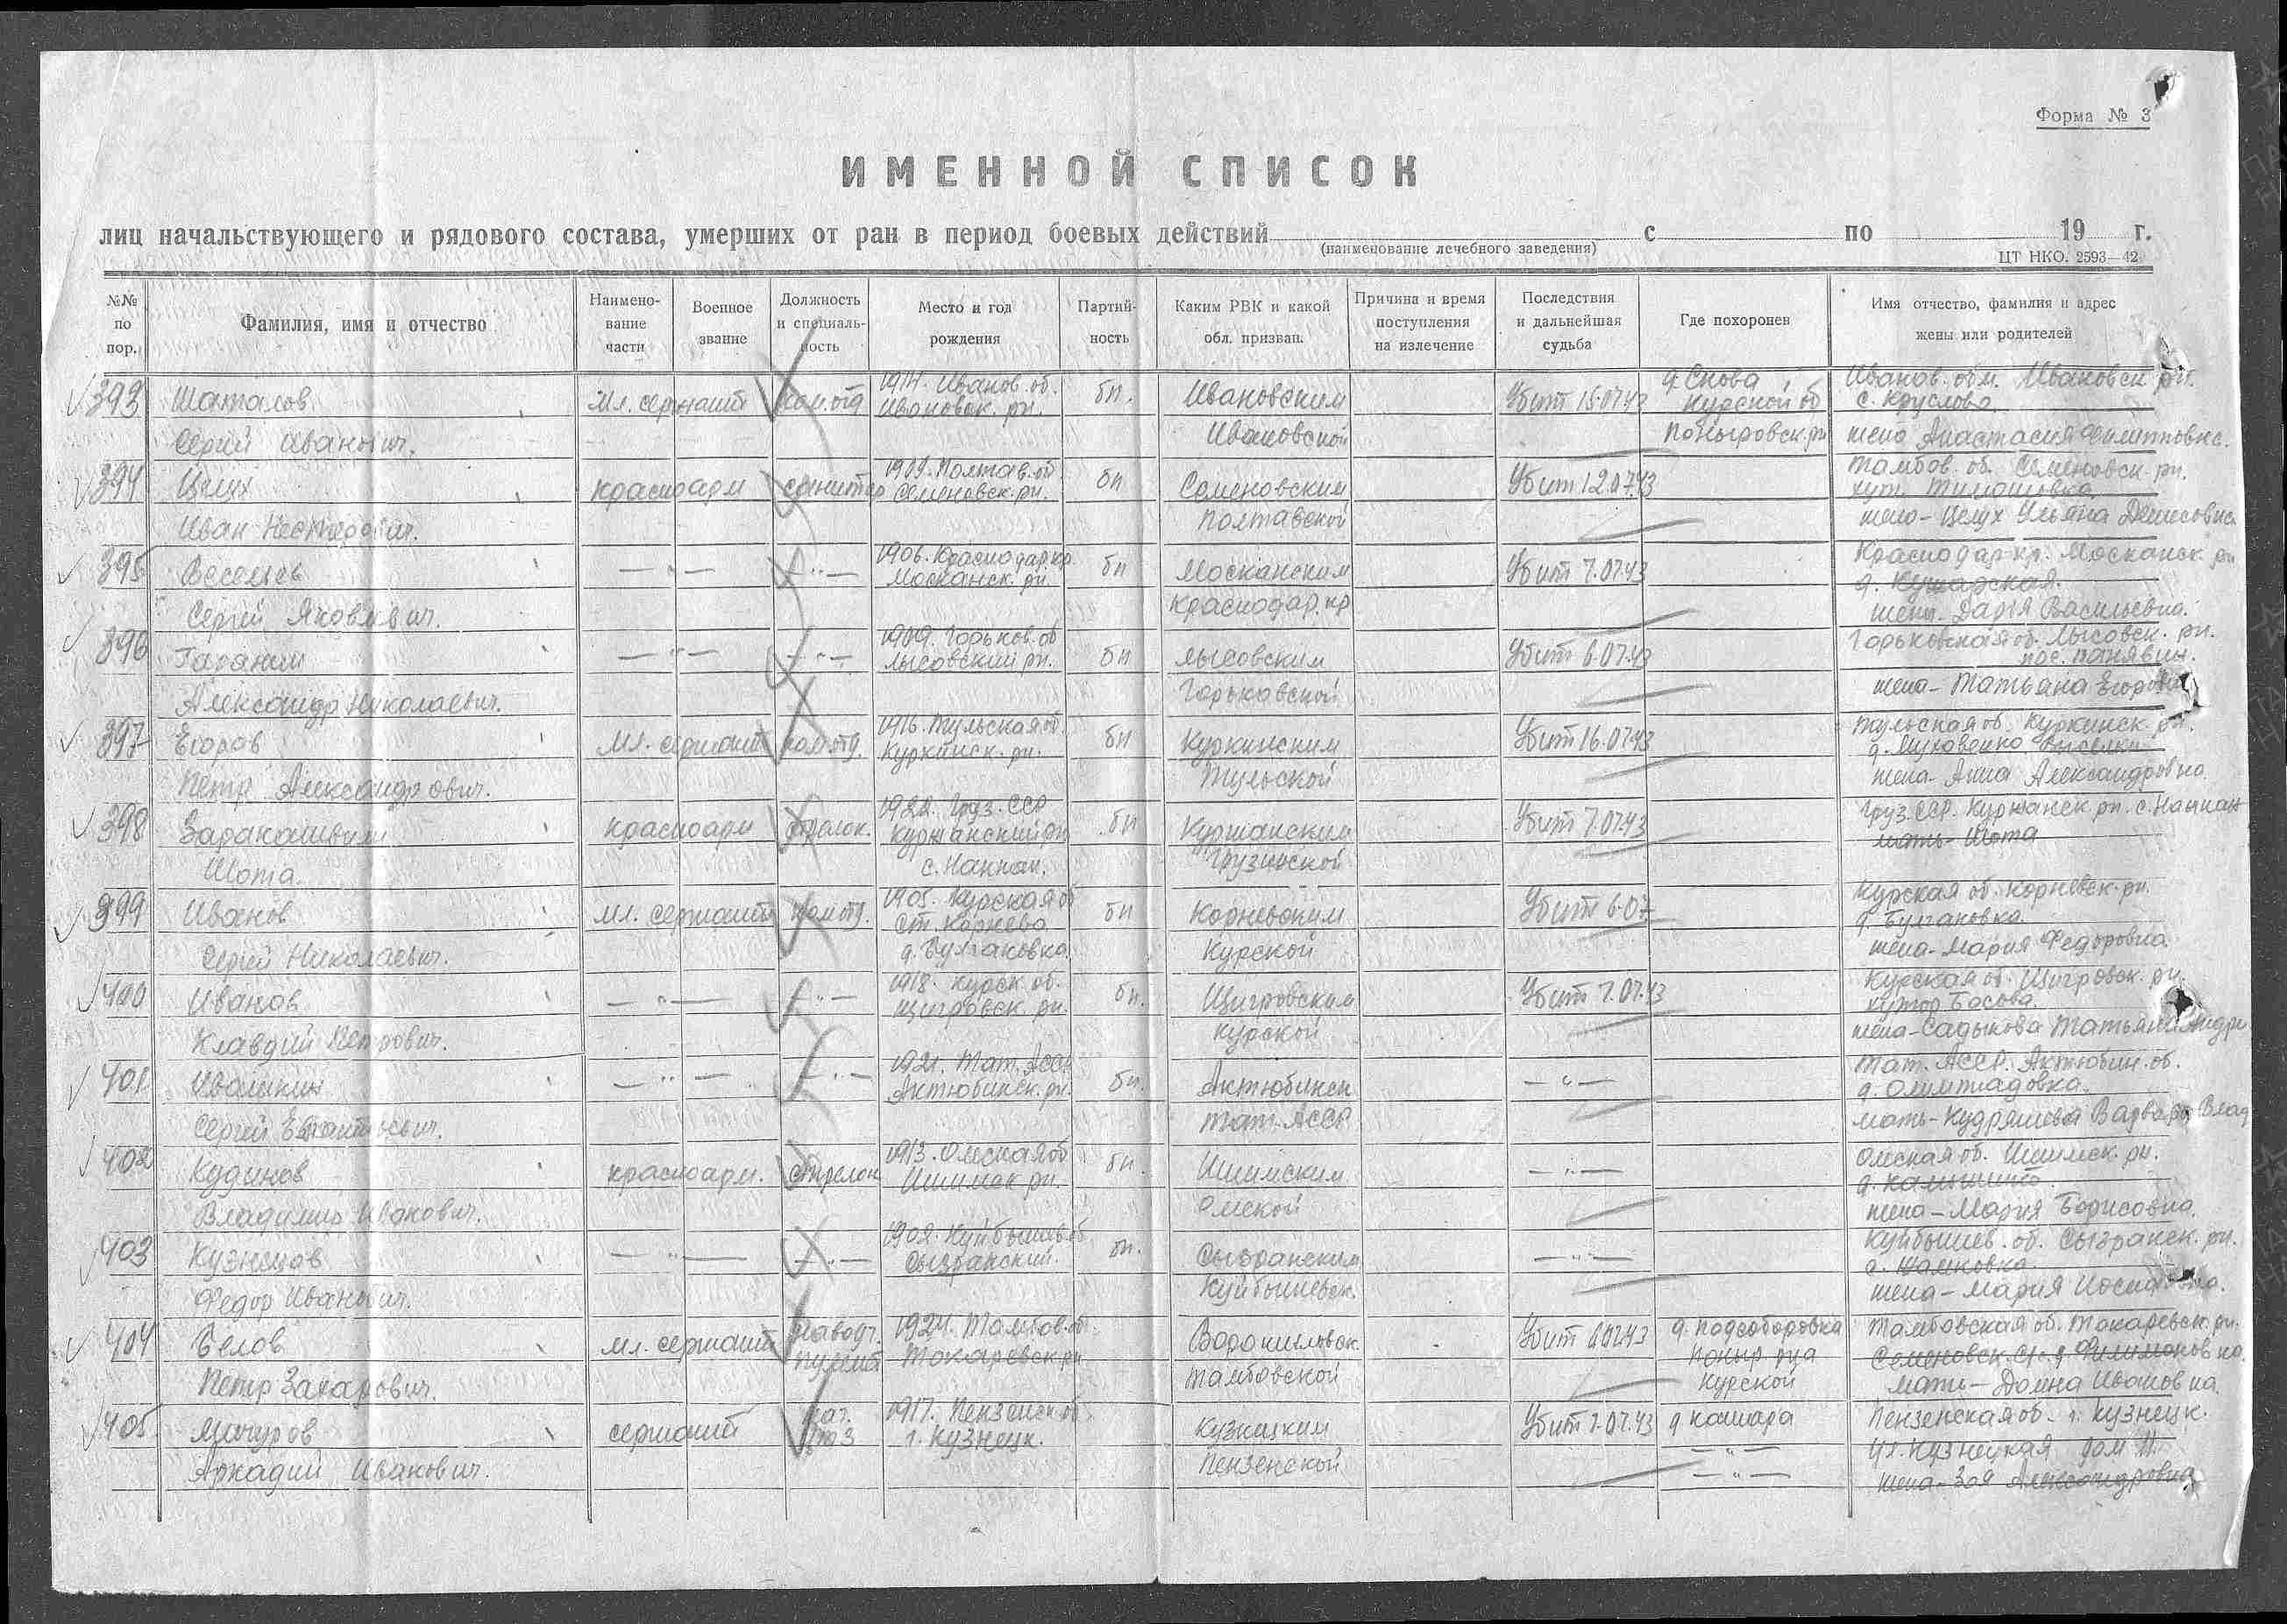 Форма № 3
ИМЕННОЙ СПИСОК
лиц начальствующего и рядового состава, умерших от ран в период боевых действий с по 19 г.
(наименование лечебного заведения)
ЦТ НКО. 2593—42
№№ по пор. Фамилия, имя и отчество Наимено-вание части Военное звание Должность и специаль-ность Место и год рождения Партий-ность Каким РВК и какой обл. призван. Причина и время поступления на излечение Последствия и дальнейшая судьба Где похоронен Имя отчество, фамилия и адрес жены или родителей
393 Шаталов Мл. сержант ком.отд 1914. Иванов. об. Ивановск. рн. бп. Ивановским Убит 15.07.43 д. Снова Курской об Иванов. обл. Ивановск рн. с. Круглово
Сергей Иванович. Ивановской Поныровск. рн жена Анастасия Филипповна.
394 Целух красноарм санитар 1909. Полтав. об Семеновск. рн. бп Семеновским Убит 12.07.43 Тамбов. об. Семеновск. рн. хут. Тимошовка
Иван Нестерович. Полтавской жена - Целух Ульяна Денисовна
395 — " — — " — 1906. Краснодар.кр Москанск. рн. бп Москанским Убит 7.07.43 Краснодар. кр. Москанск. рн
Сергей Яковлевич. Краснодар. кр жена. Дарья Васильевна.
396 Гаранин — " — — " — 1909. Горьков. об Лысовский рн. бп Лысовским Убит 6.07.43 Горьковская об. Лысовск. рн.
Александр Николаевич. Горьковской жена - Татьяна Егоровна
397 Егоров Мл. сержант ком.отд. 1916. Тульская об. Куркинск. рн. бп Куркинским Убит 16.07.43 Тульская об. Куркинск. рн. д. выселки
Петр Александрович. Тульской жена - Анна Александровна
398 красноарм стрелок. 1922. Груз. ССР Куржанский рн бп Куржанским Убит 7.07.43 Груз. ССР. Куржанск. рн. с. Напнап
Шота. с. Напнап. Грузинской мать - Шота
399 Иванов мл. сержант ком отд. 1905. Курская об ст. Корнево бп Корневским Убит 6.07 Курская об. Корневск. рн. д. Булгаковка
Сергей Николаевич. д. Булгаковка Курской жена - Мария Федоровна
400 Иванов — " — — " — 1918. Курск. об. Щигровск. рн. бп. Щигровским Убит 7.07.43 Курская об. Щигровск. рн. хутор Басова.
Клавдий Петрович. Курской жена - Садыкова Татьяна Андре
401 Ивашкин — " — — " — 1921. Тат. АССР Актюбинск. рн. бп. Актюбинск — " — Тат. АССР. Актюбин. об. д. Олимпиадовка.
Сергей Тат. АССР мать - Кудряшева Варвара Влад
402 Кудинов красноарм. стрелок 1913. Омская об Ишимск рн. бп. Ишимским — " — Омская об. Ишимск. рн.
Владимир Иванович. Омской жена - Мария Борисовна.
403 Кузнецов — " — — " — 1902. Куйбышев об Сызранский. бп. Сызранским — " — Куйбышев. об. Сызранск. рн.
Федор Иванович. Куйбышевск. жена - Мария
404 Белов мл. сержант наводч. пулемет 1924. Тамбов. об Токаревск рн Убит 6.07.43 д. Подсоборовка Поныр р-на Тамбовская об. Токаревск. рн. Семеновск. с/с. д. Филимоновка.
Петр Захарович. Тамбовской Курской мать - Домна Ивановна.
405 Мичуров сержант 1917. Пензенск об г. Кузнецк. Кузнецким Убит 7.07.43 д кашара — " — Пензенская об. г. Кузнецк. ул. Кузнецкая дом 11
Аркадий Иванович. Пензенской — " — жена - Зоя Александровна